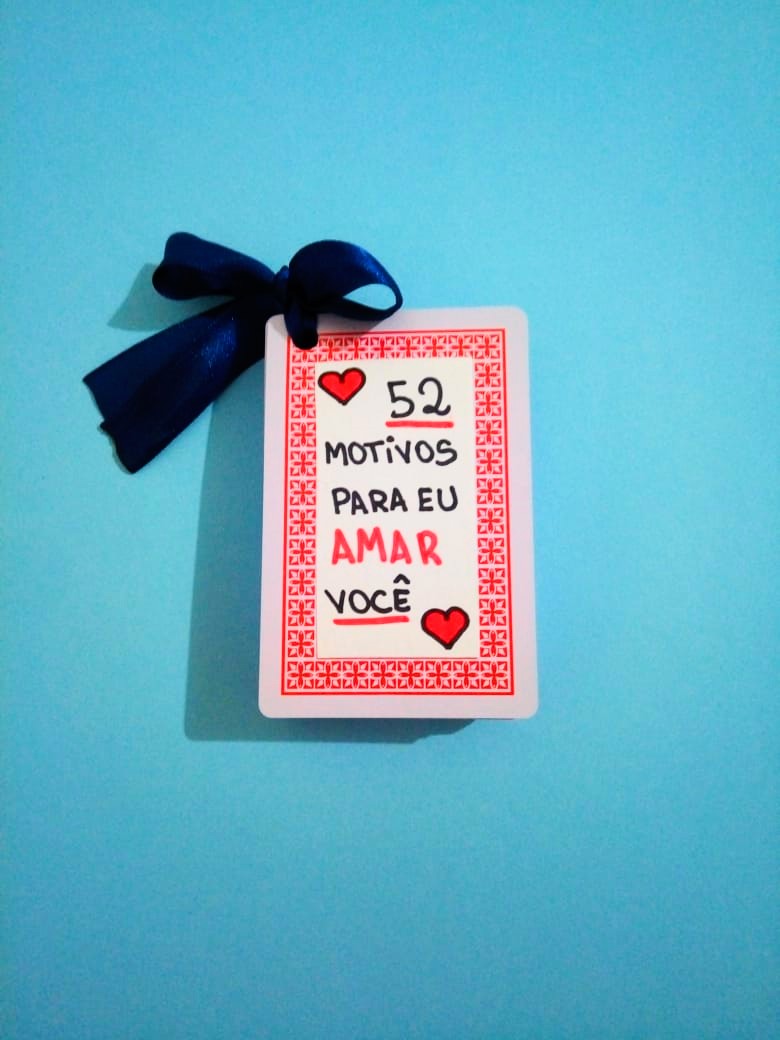 52
MOTiVOS
PARA EU
AMAR
VOCÊ